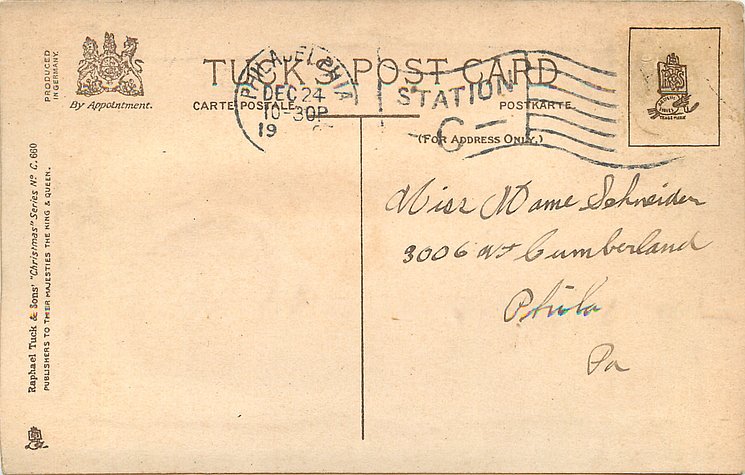 PRODUCED
IN GERMANY.
By Appointment.
TUCK'S POST CARD
CARTE POSTALE.
POSTKARTE
(FOR ADDRESS ONLY.)
PHILADELPHIA
DEC 24
10-30P
19
STATION
C
Raphael Tuck & Sons' "Christmas" Series No C. 660
PUBLISHERS TO THEIR MAJESTIES THE KING & QUEEN.
Miss Mame Schneider
3006 W Cumberland
Phila
Pa